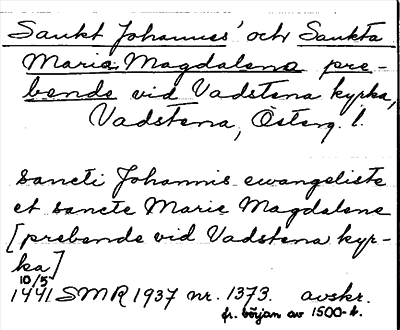 Sankt Johannes' och Sankta
Maria Magdalena pre-
bende vid Vadstena kyrka,
Vadstena, Österg. l.
sancti Johannis ewangeliste
et sancte Marie Magdalene
[prebende vid Vadstena kyr-
ka]
10/5
1441 SMR 1937 nr. 1373. avskr.
fr. början av 1500-t.